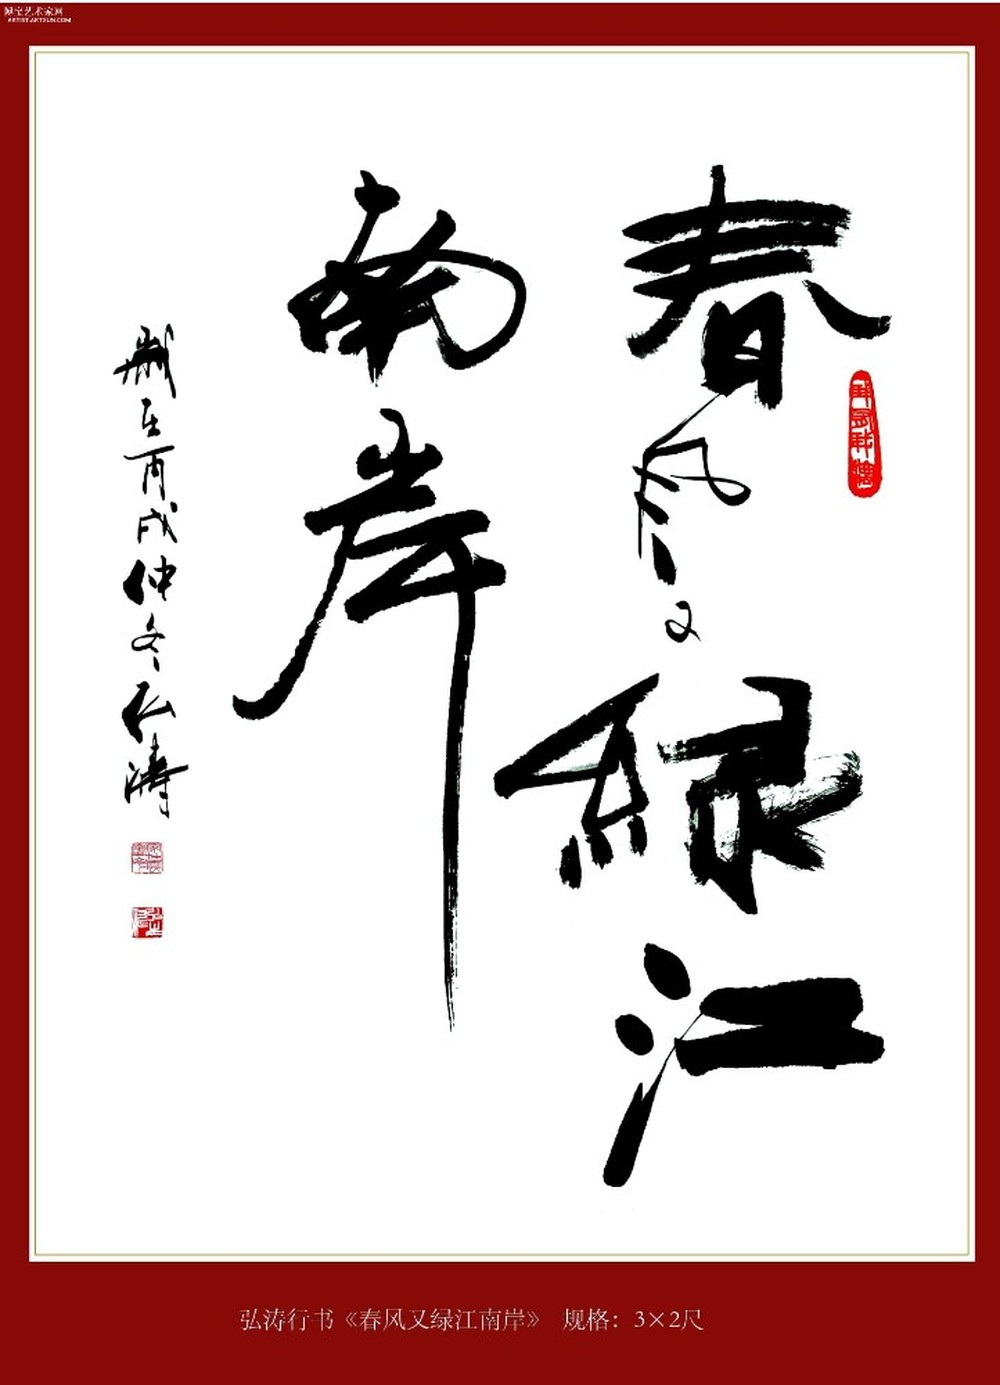 雅宝艺术家网
ARTIST.ARTXUN.COM
春风又緑江
南岸
歲在丙戌仲冬弘涛
弘涛行书《春风又绿江南岸》 规格：3×2尺